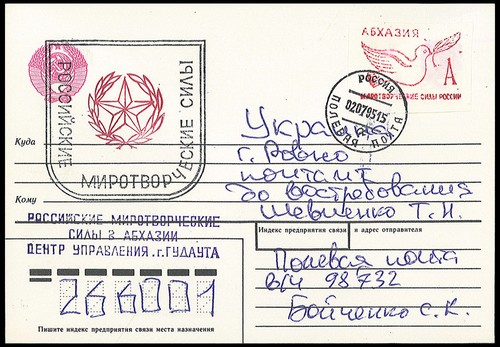 АБХАЗИЯ
А
МИРОТВОРЧЕСКИЕ СИЛЫ РОССИИ
РОССИЙСКИЕ
МИРОТВОРЧЕСКИЕ СИЛЫ
РОССИЯ
02079515
ПОЛЕВАЯ ПОЧТА
Куда
Украина
г. Ровно
почтамт
Кому
до востребования
Шевченко Т.Н.
РОССИЙСКИЕ МИРОТВОРЧЕСКИЕ
СИЛЫ В АБХАЗИИ
ЦЕНТР УПРАВЛЕНИЯ .г.ГУДАУТА
Индекс предприятия связи и адрес отправителя
Полевая почта
в/ч 98732
Бойченко С.К.
266001
Пишите индекс предприятия связи места назначения